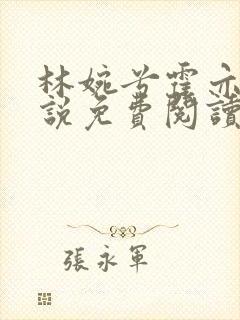 林婉兮霍亦
說免費閱讀
張永軍